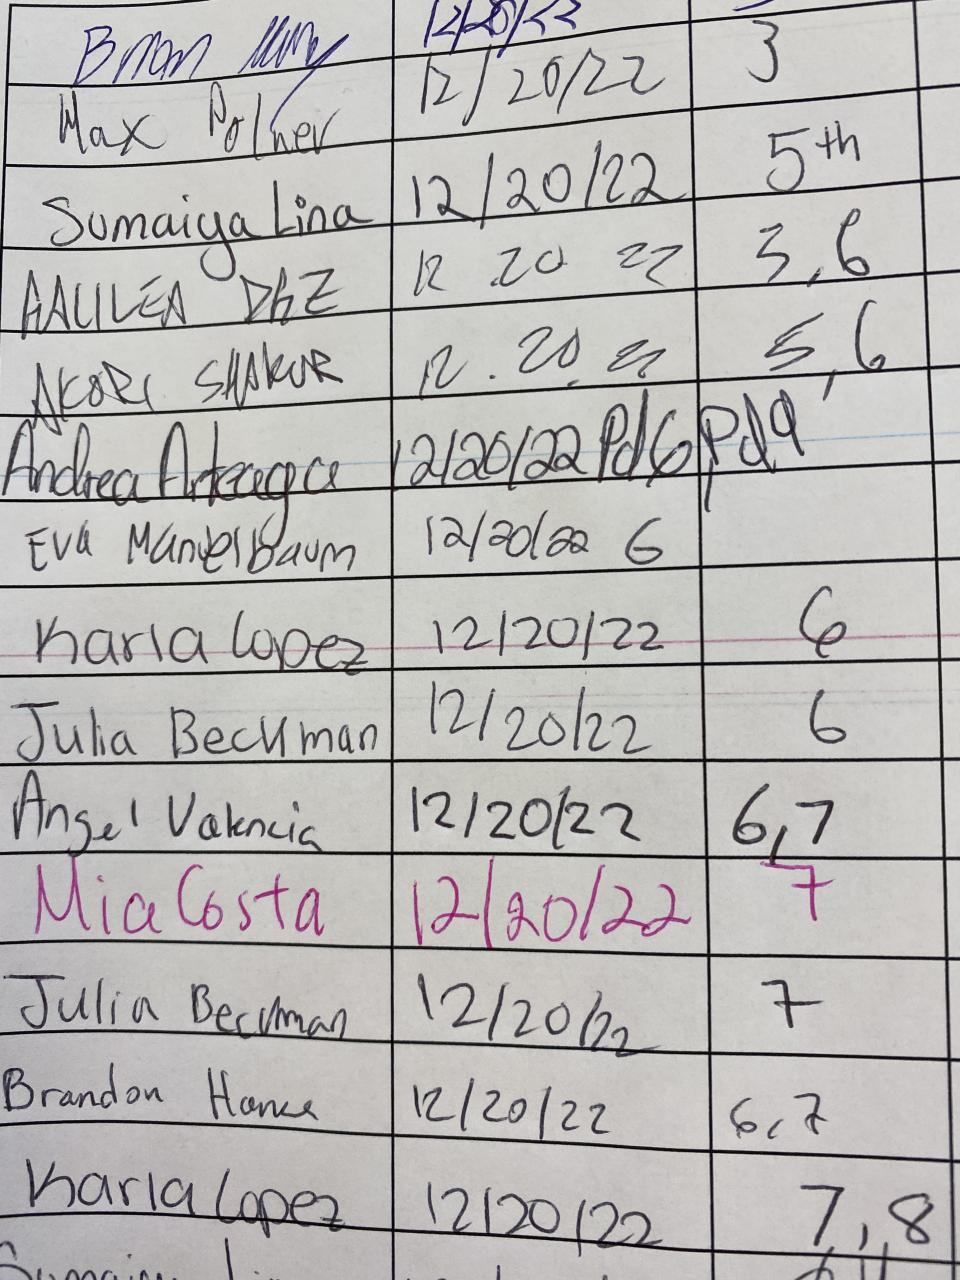 Brian 12/20/22
Max Polner 12/20/22 3
Sumaiya Lina 12/20/22 5th
GALILEA DAZ 12 20 22 3,6
AKORI SHAKUR 12.20.22 5,6
Andrea Arteaga 12/20/22 Pd6 Pd9
Eva Mandelbaum 12/20/22 6
Karla Lopez 12/20/22 6
Julia Beckman 12/20/22 6
Angel Valencia 12/20/22 6,7
Mia Costa 12/20/22 7
Julia Beckman 12/20/22 7
Brandon 12/20/22 6,7
Karla Lopez 12/20/22 7,8